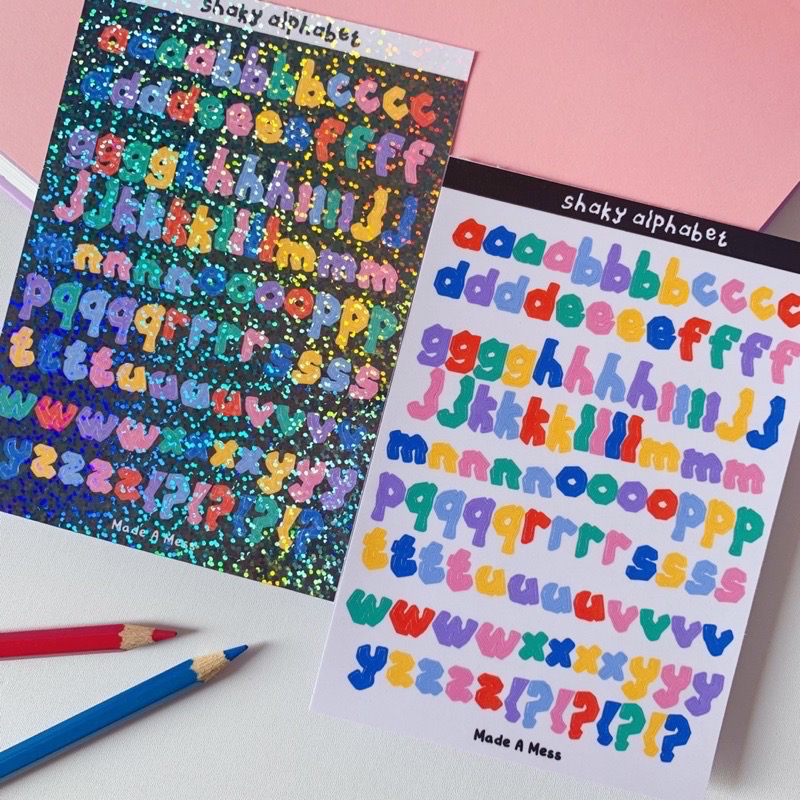 shaky alphabet
aaaabbbbcccc
ddddeeeeffff
gggghhhhiiiiJJ
JJkkkkllllmmm
mnnnnooooppp
pqqqqrrrrssss
ttttuuuuvvvv
wwwwxxxxyyy
yzzzz!?!?!?!?
Made A Mess
shaky alphabet
aaaabbbbcccc
ddddeeeeffff
gggghhhhiiiiJJ
JJkkkkllllmmm
mnnnnooooppp
pqqqqrrrrssss
ttttuuuuvvvv
wwwwxxxxyyy
yzzzz!?!?!?!?
Made A Mess